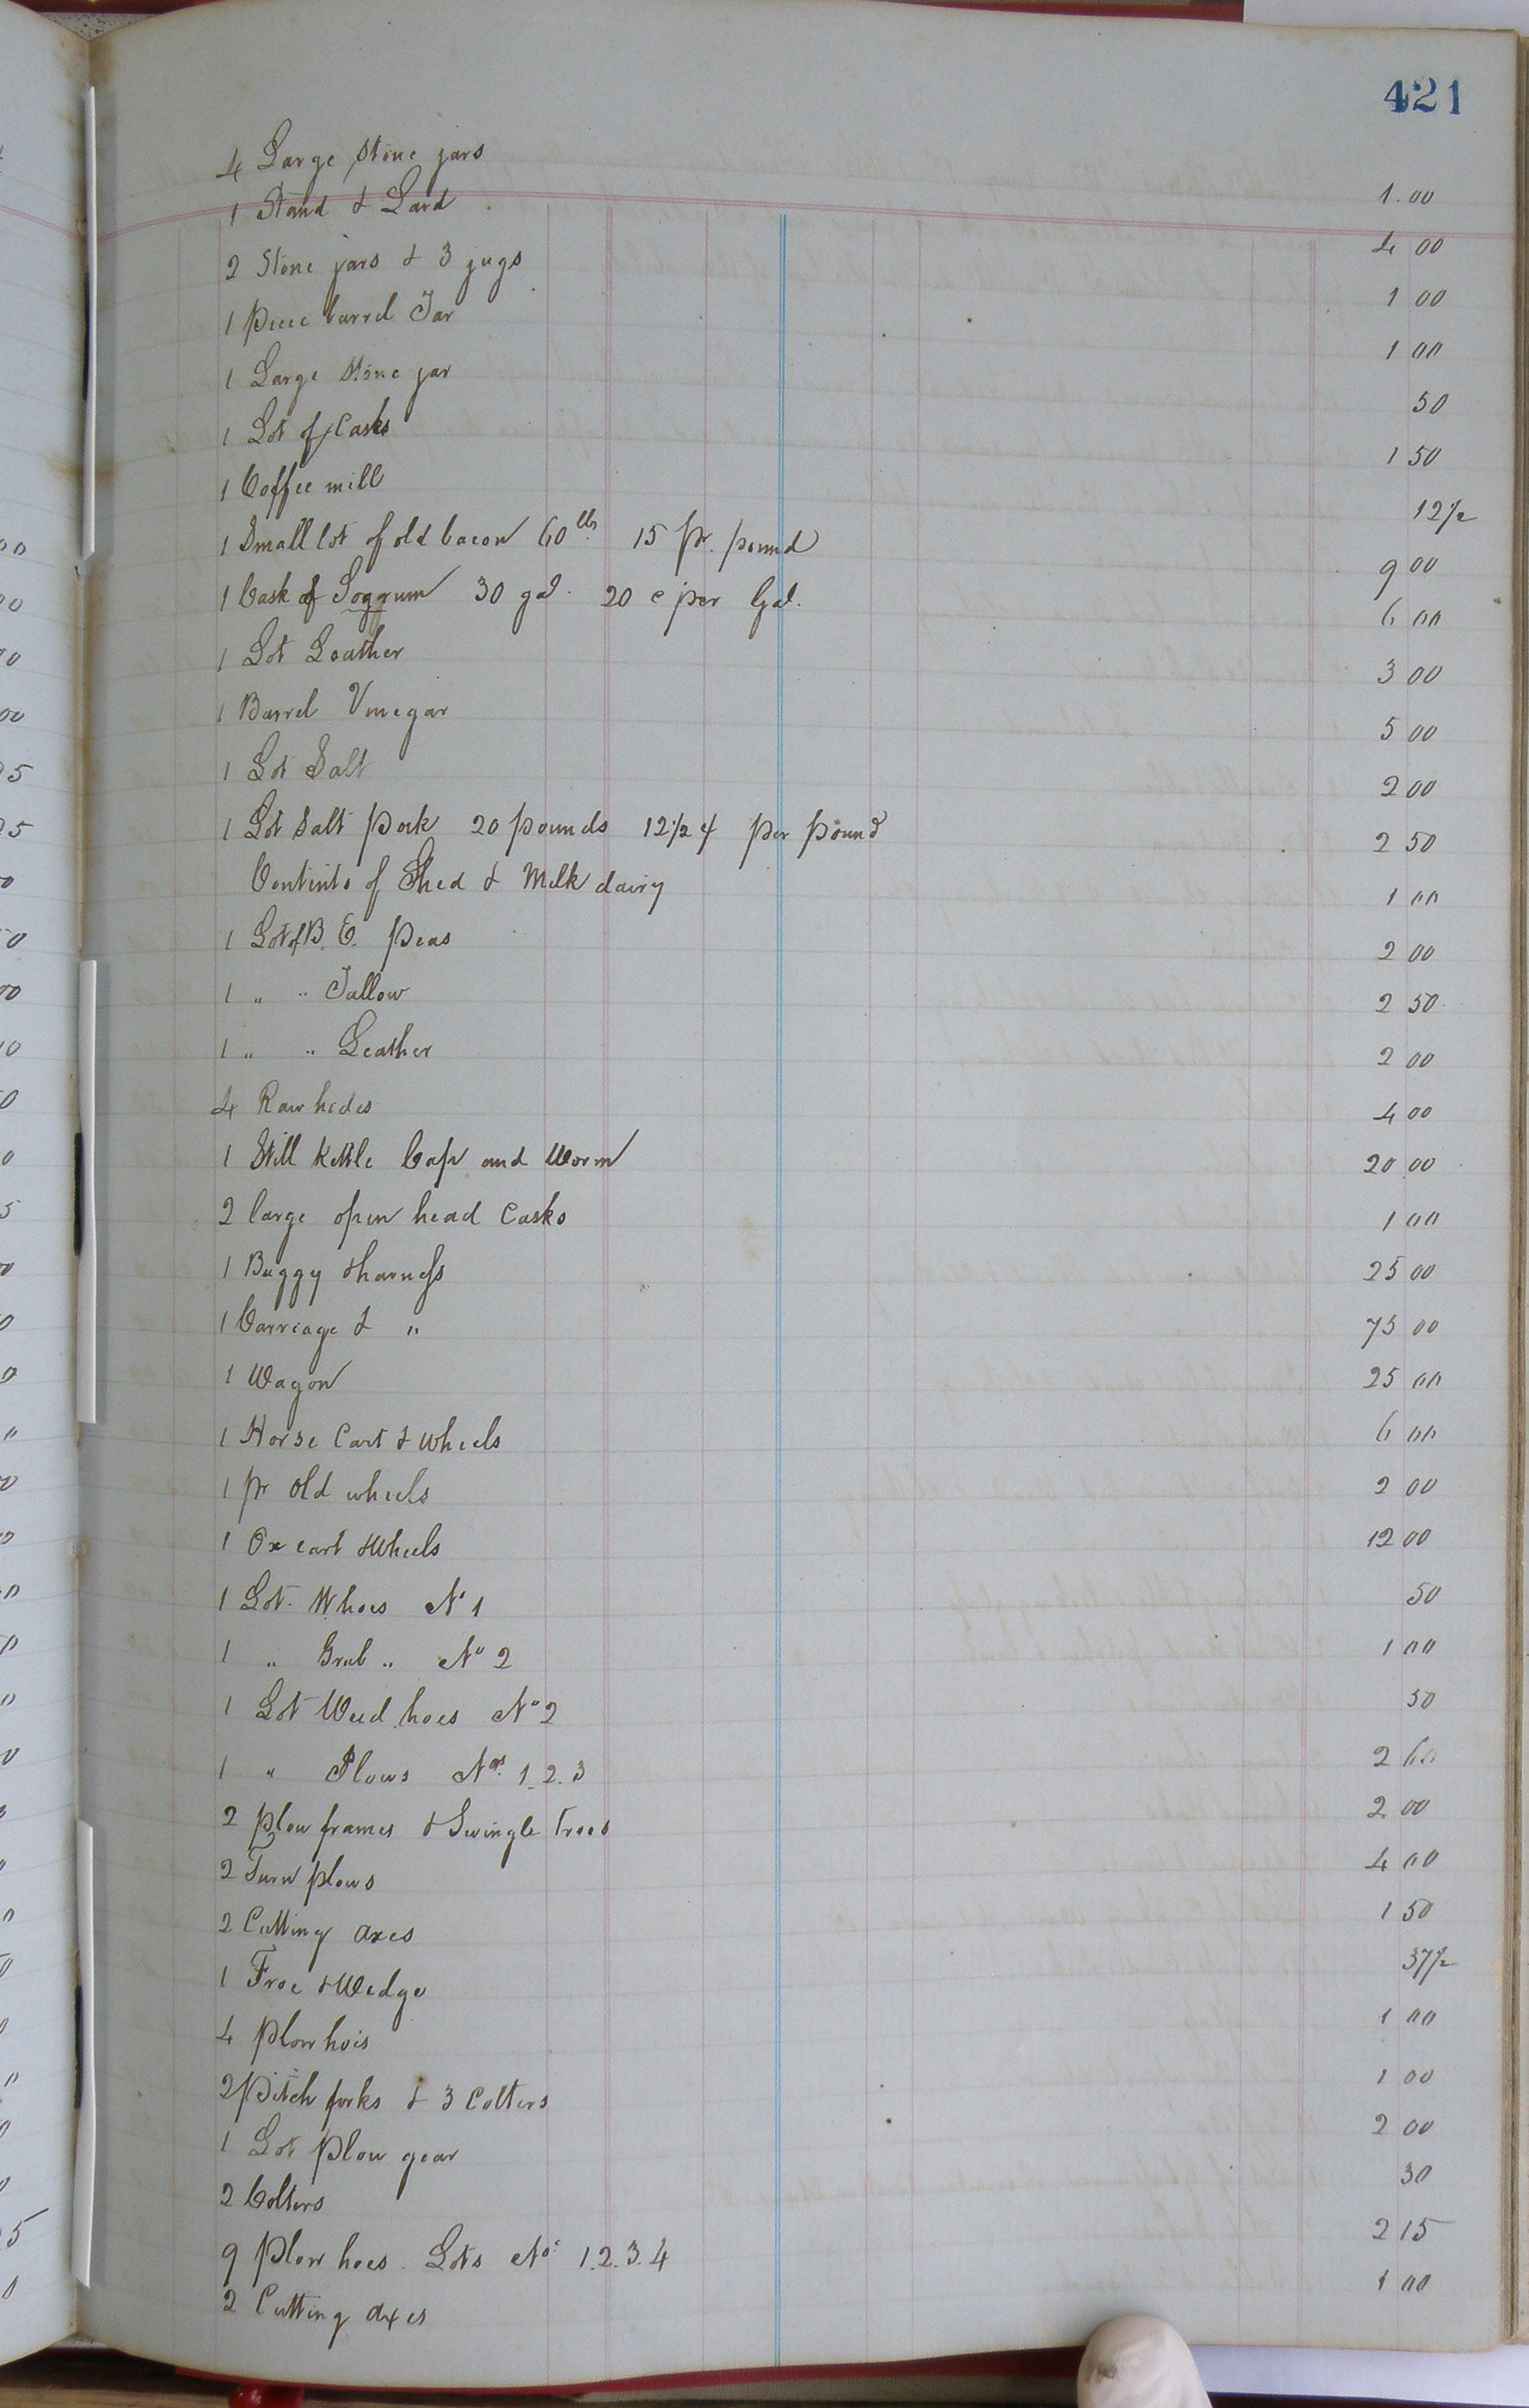 421
4 Large Stone jars 1.00
1 Stand & Lard 4 00
2 Stone jars & 3 jugs 1 00
1 piece barrel Tar 1 00
1 Large Stone jar 50
1 Lot of Casks 1 50
1 Coffee mill 12½
1 Small lot of old bacon 60 lbs 15 pr. pound 9 00
1 Cask of Soggrum 30 gal. 20 c per Gal. 6 00
1 Lot Leather 3 00
1 Barrel Vinegar 5 00
1 Lot Salt 2 00
1 Lot Salt Pork 20 pounds 12½ ¢ per pound 2 50
Contints of Shed & Milk dairy 1 00
1 Lot of B. E. Peas 2 00
1 " " Tallow 2 50
1 " " Leather 2 00
4 Raw hides 4 00
1 Still Kettle Cap and Worm 20 00
2 large open head Casks 1 00
1 Buggy & harness 25 00
1 Carriage & " 75 00
1 Wagon 25 00
1 Horse Cart & Wheels 6 00
1 pr old wheels 2 00
1 Ox cart & Wheels 12 00
1 Lot W. hoes No 1 50
1 " Grub " No 2 1 00
1 Lot Weed hoes No 2 50
1 " Plows Nos. 1. 2. 3 2 60
2 plow frames & Swingle Trees 2.00
2 Turn plows 4 00
2 Cutting axes 1 50
1 Froe & Wedge 37½
4 Plow hois 1 00
2 Pitch forks & 3 Colters 1 00
1 Lot Plow gear 2 00
2 Colters 30
9 Plow hoes. Lots Nos 1.2.3.4 2 15
2 Cutting axes 1 00